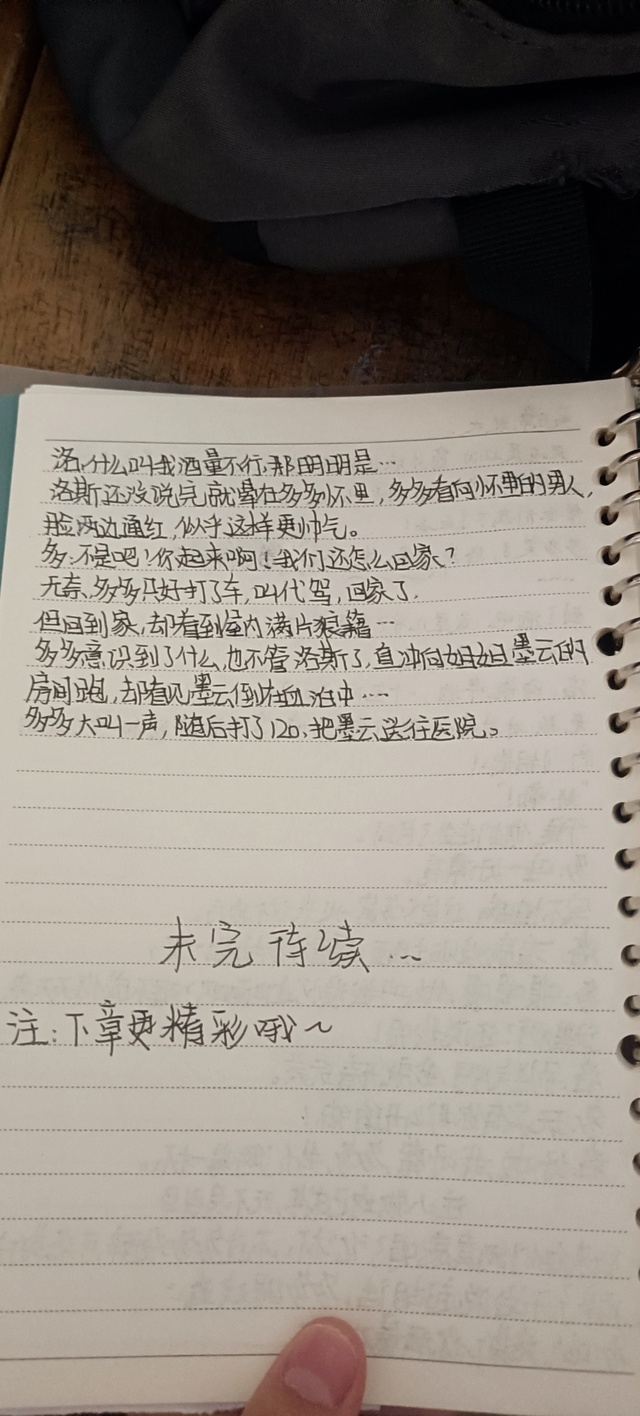 洛:什么叫我酒量不行,那明明是…
洛斯还没说完,就晕在多多怀里,多多看向怀里的男人,
脸两边通红,似乎这样更帅气。
多:不是吧!你起来啊!我们还怎么回家?
无奈,多多只好打了车,叫代驾,回家了.
但回到家,却看到屋内满片狼籍…
多多意识到了什么,也不管洛斯了,直冲向姐姐墨云的
房间跑,却看见墨云倒在血泊中…
多多大叫一声,随后打了120,把墨云送往医院。
未完待续...
注:下章更精彩哦~